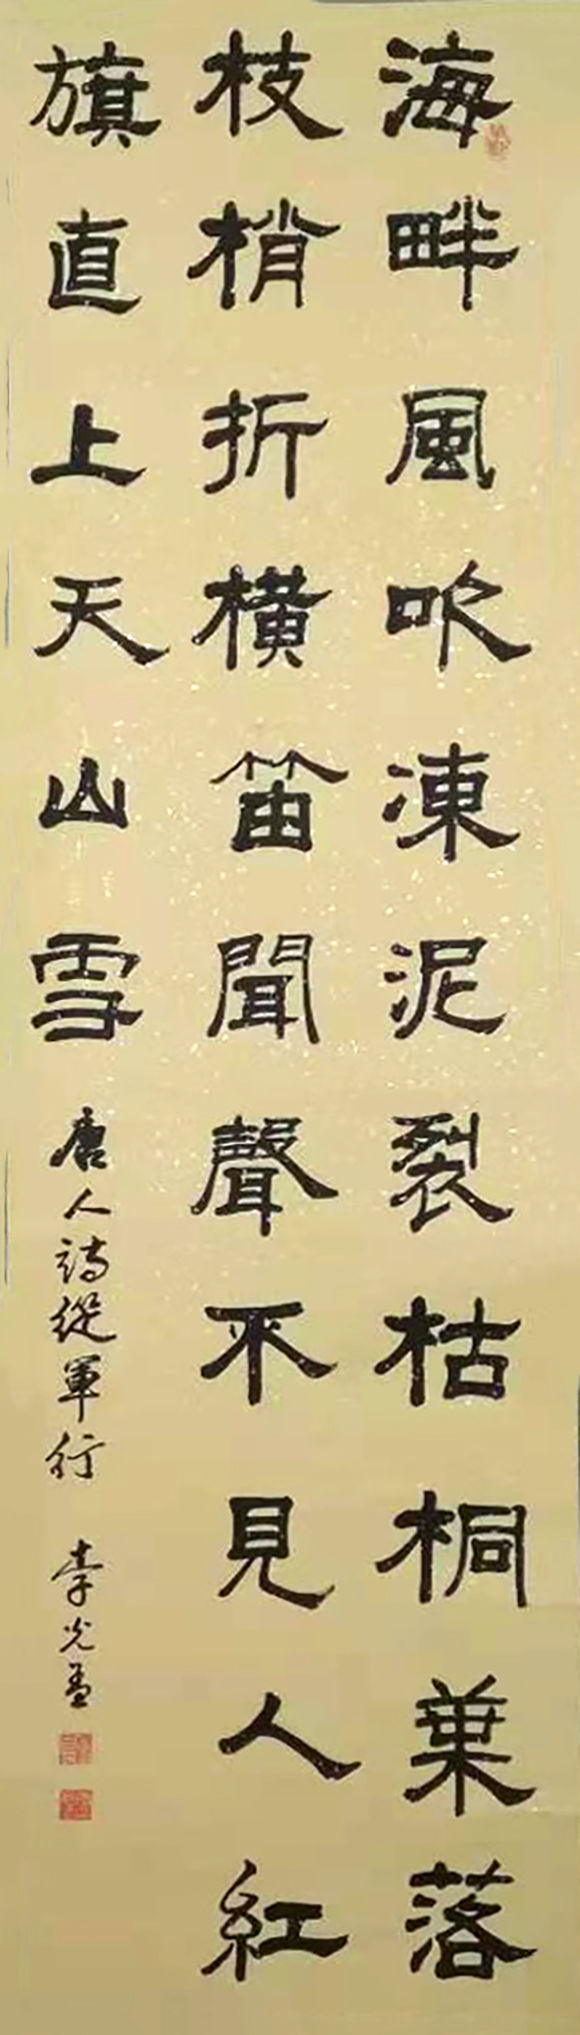 海畔風吹凍泥裂枯桐葉落
枝梢折橫笛聞聲不見人紅
旗直上天山雪
唐人詩從軍行
李光